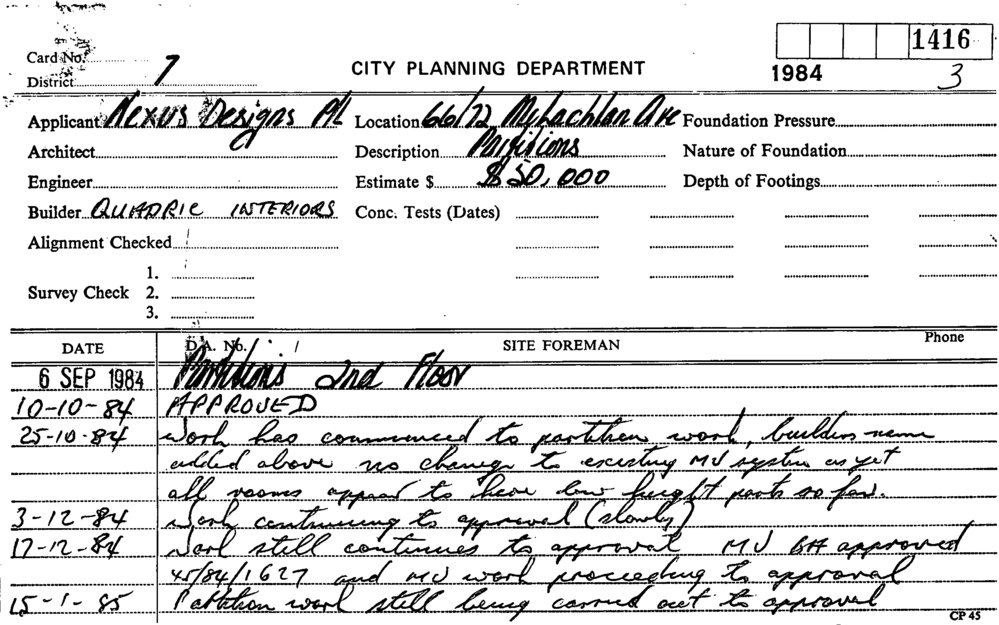 Card No.
1416
District 7
CITY PLANNING DEPARTMENT
1984
3
Applicant Nexus Designs P/L Location 66/72 McLachlan Ave Foundation Pressure
Architect Description Partitions Nature of Foundation
Engineer Estimate $ $50,000 Depth of Footings
Builder QUADRIC INTERIORS Conc. Tests (Dates)
Alignment Checked
1.
Survey Check 2.
3.
DATE D.A. No. SITE FOREMAN Phone
6 SEP 1984 Partitions 2nd Floor
10-10-84 APPROVED
25-10-84 Work has commenced to partition work, builders name
added above no change to existing MV system as yet
all rooms appear to have low height parts so far.
3-12-84 Work continuing to approval (slowly)
17-12-84 Work still continues to approval MV BA approved
45/84/1627 and MV work proceeding to approval
15-1-85 Partition work still being carried out to approval
CP 45